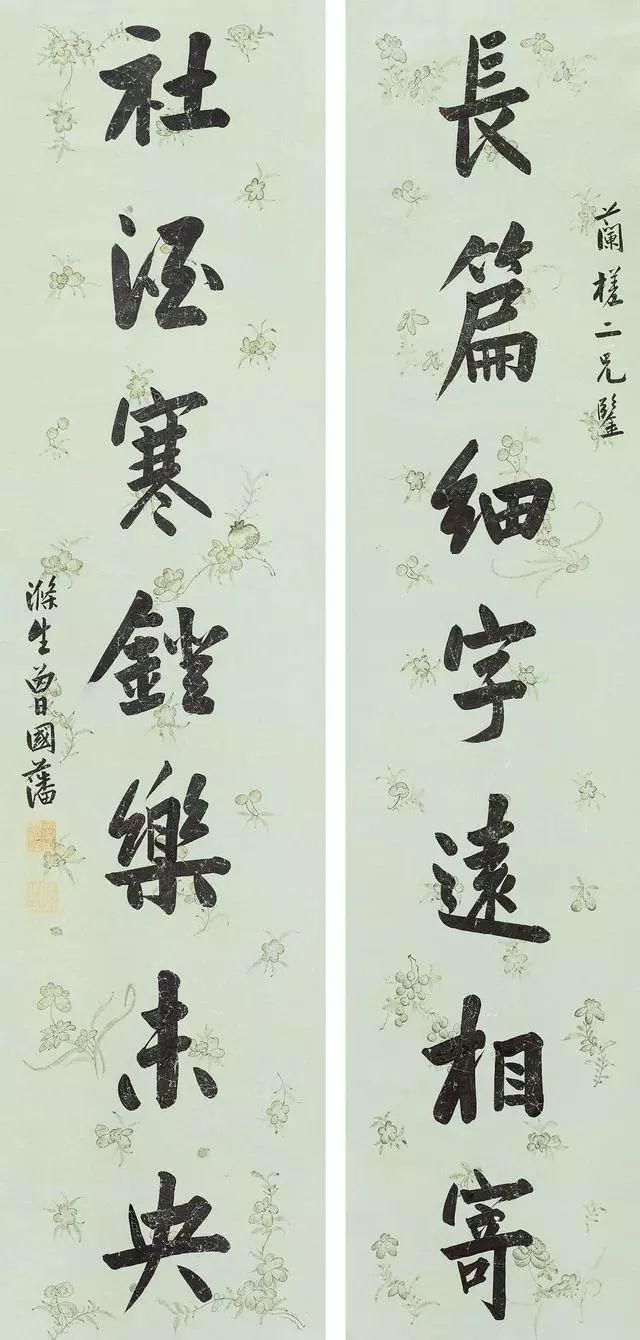 蘭槎二兄鑒
長篇細字遠相寄
社酒寒鐙樂未央
滌生曾國藩